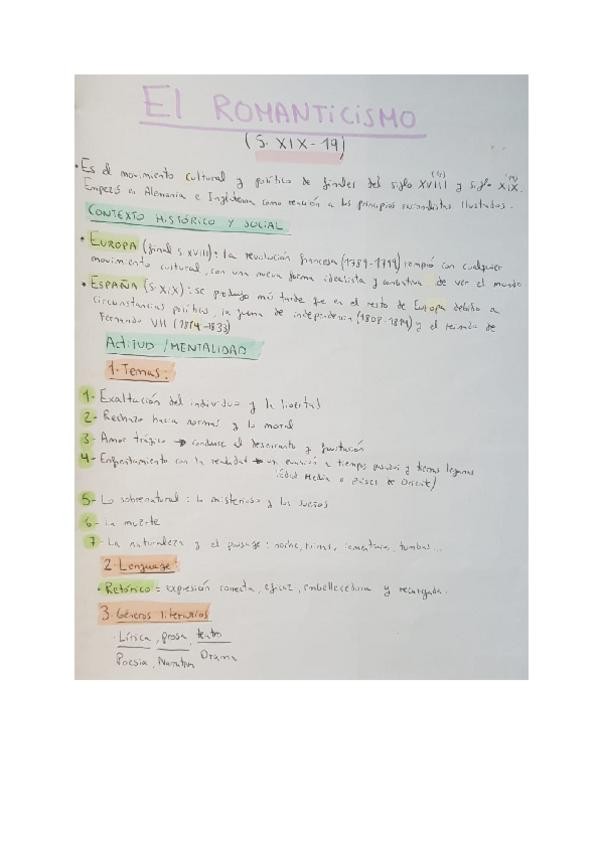 El ROMANTICISMO
(S. XIX-19)
• Es el movimiento cultural y político de finales del siglo XVIII y siglo XIX.
Empezó en Alemania e Inglaterra como reacción a los principios Ilustrados.
CONTEXTO HISTÓRICO Y SOCIAL
• EUROPA (final s. XVIII): la revolución francesa (1789-1799) rompió con cualquier
movimiento cultural, con una nueva forma idealista y de ver el mundo
• ESPAÑA (S. XIX): se produjo más tarde que en el resto de Europa debido a
circunstancias políticas, la guerra de independencia (1808-1814) y el reinado de
Fernando VII (1814-1833)
ACTITUD / MENTALIDAD
1. Temas:
1- Exaltación del individuo y la libertad
2- Rechazo hacia normas y lo moral
3- Amor trágico → conduce al desencanto y frustración
4- Enfrentamiento con la realidad → un evasión a tiempos pasados y tierras lejanas
(Edad Media o países de Oriente)
5- Lo sobrenatural: lo misterioso y los sueños
6- La muerte
7- La naturaleza y el paisaje: noche, ruinas, cementerios, tumbas...
2. Lenguaje:
• Retórico = expresión correcta, eficaz, embellecedora y recargada.
3. Géneros literarios
· Lírica, prosa, teatro
Poesía, Narrativa Drama